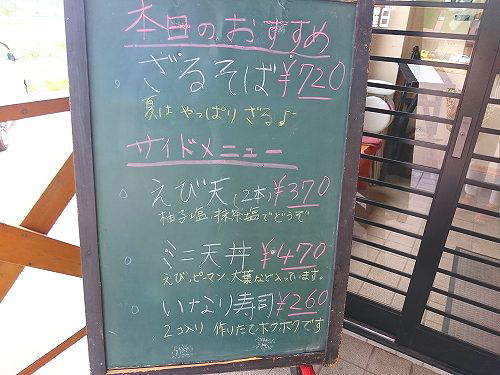 本日のおすすめ
ざるそば ¥720
夏は やっぱり ざる♪
サイドメニュー
えび天(2本) ¥370
柚子塩、抹茶塩でどうぞ
ミニ天丼 ¥470
えび、ピーマン、大葉など入っています。
いなり寿司 ¥260
2コ入り 作りたてホクホクです